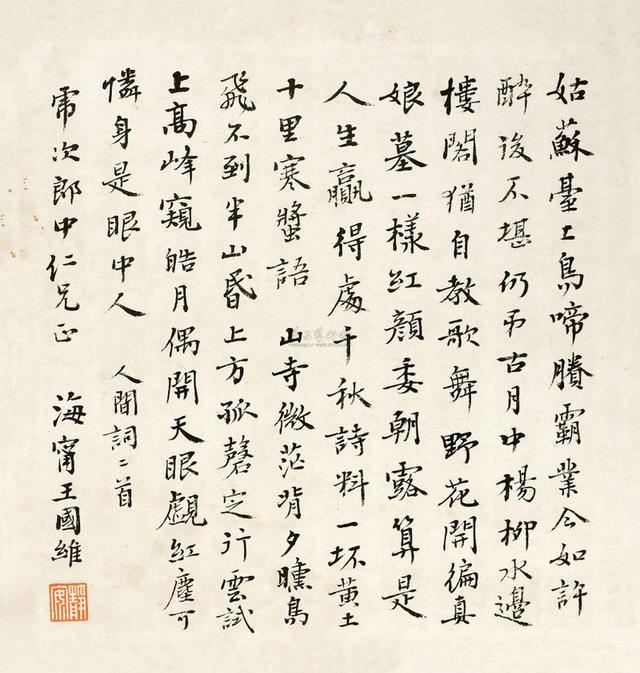 姑蘇臺上烏啼賸霸業今如許
醉後不堪仍弔古月中楊柳水邊
樓閣猶自教歌舞野花開徧真
娘墓一樣紅顏委朝露算是
人生贏得處千秋詩料一抔黃土
十里寒螿語 山寺微茫背夕曛鳥
飛不到半山昏上方孤磬定行雲試
上高峰窺皓月偶開天眼覷紅塵可
憐身是眼中人 人間詞二首
次郎中仁兄正
海甯王國維
靜安